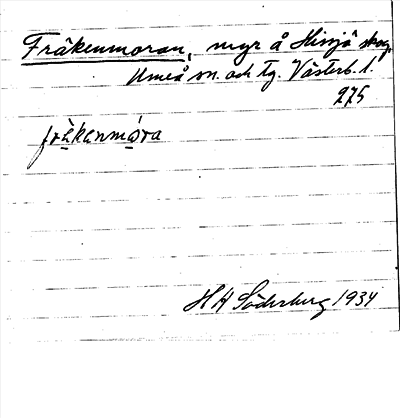 Fräkenmoran, myr å Hissjö skog,
Umeå sn. och tg. Västerb. l.
275
fräkenmora
H H Söderberg 1934